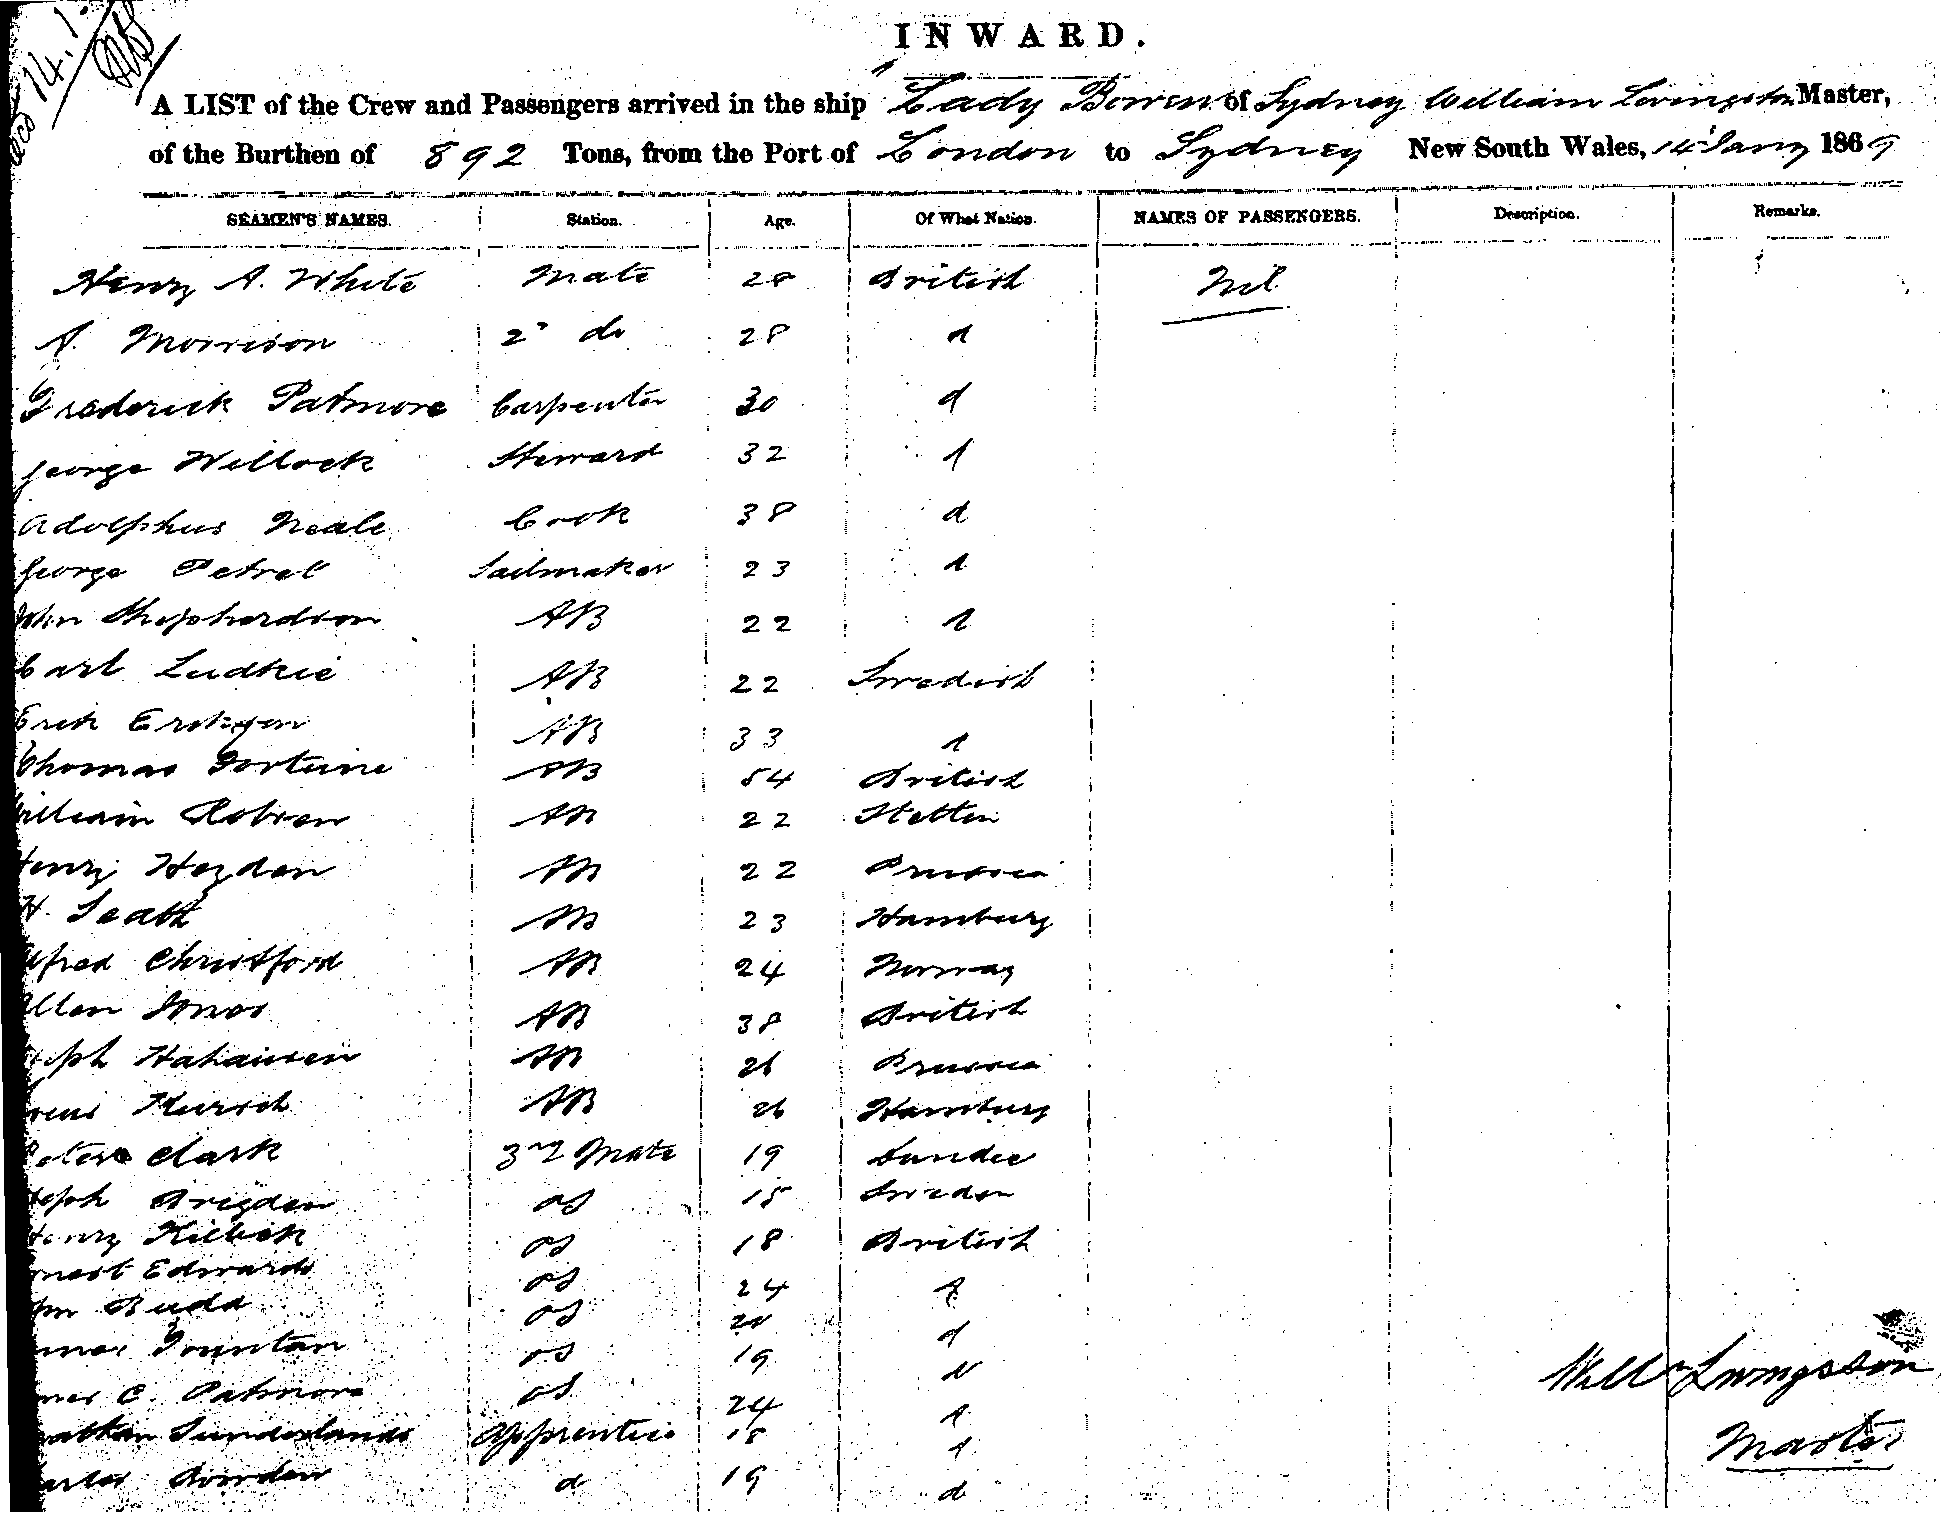 14.1.
INWARD.
A LIST of the Crew and Passengers arrived in the ship Lady Bowen of Sydney William Livingston Master,
of the Burthen of 892 Tons, from the Port of London to Sydney New South Wales, 14 Jany 1869
SEAMEN'S NAMES. Station. Age. Of What Nation. NAMES OF PASSENGERS. Description. Remarks.
Henry A. White Mate 28 British Nil
A. Morrison 2d do 28 d
Frederick Patmore Carpenter 30 d
George Willock Steward 32 d
Adolphus Neale Cook 38 d
George Petrel Sailmaker 23 d
John Shephardson AB 22 d
Carl Ludkie AB 22 Swedish
Erik AB 33 d
Thomas Fortune AB 54 British
William Robson AB 22 Stettin
Henry Heyden AB 22 Prussia
H. AB 23 Hamburg
Alfred Christford AB 24 Norway
Allen Jones AB 38 British
AB 26 Prussia
AB 26 Hamburg
Peter Clark 3rd Mate 19 Dundee
Brigden OS Sweden
Henry OS 18 British
Ernest Edwards OS 24 d
Budd OS d
Fountan OS 19 d
C. Patmore OS 24 d
Sunderlands Apprentice 18 d
Bowden d 19 d
Willm Livingston
Master